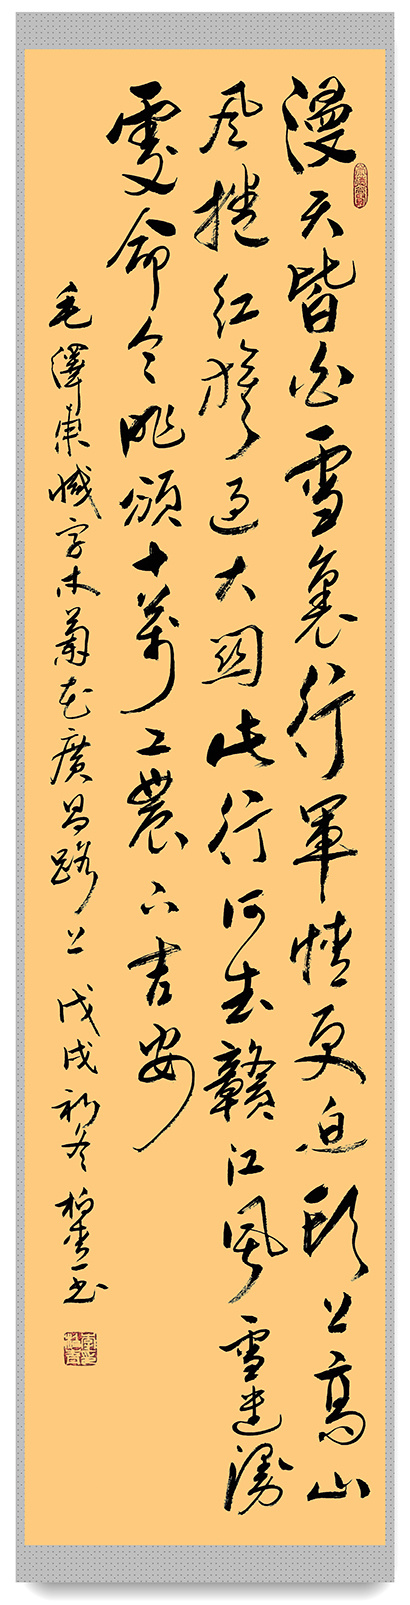 漫天皆白雪裏行軍情更迫頭上高山
風捲紅旗過大關此行何去贛江風雪迷漫
處命令昨頒十萬工農下吉安
毛澤東減字木蘭花廣昌路上 戊戌初冬